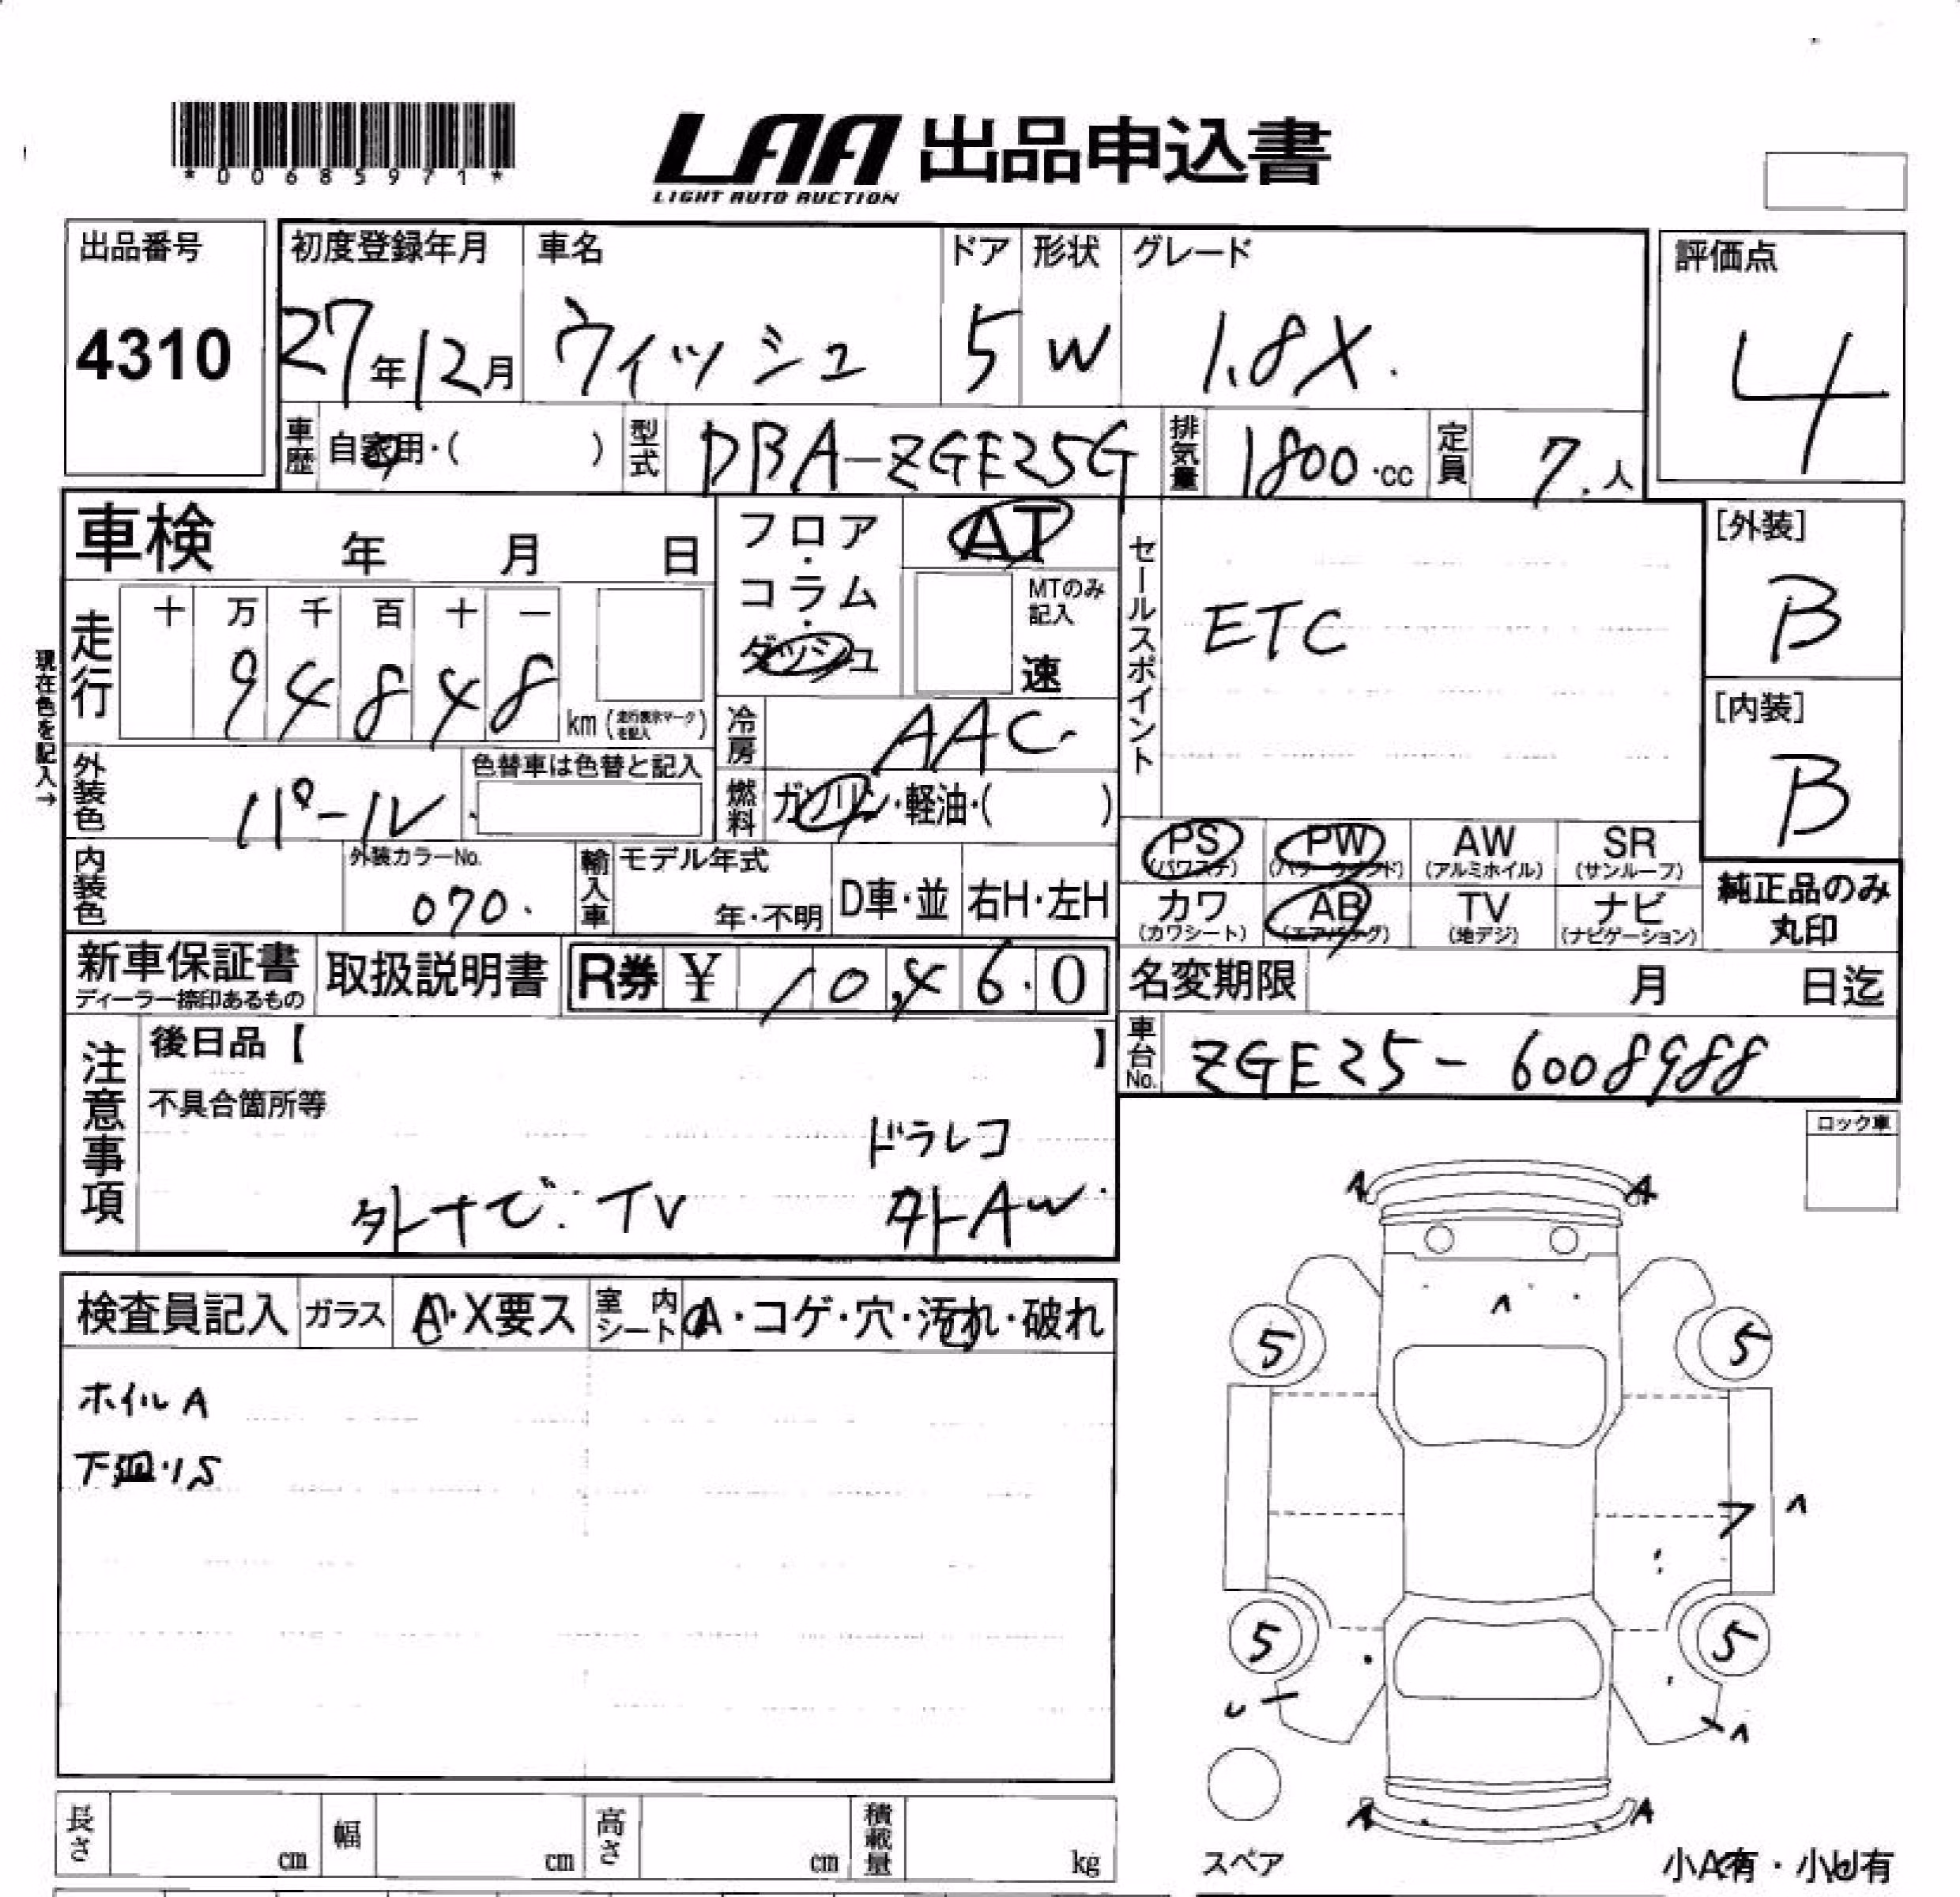 *00685971*
LAA 出品申込書
LIGHT AUTO AUCTION
出品番号
4310
初度登録年月 車名 ドア 形状 グレード
27年12月 ウィッシュ 5 W 1.8X.
評価点
4
車歴 自家用・( ) 型式 DBA-ZGE25G 排気量 1800・cc 定員 7.人
車検 年 月 日
フロア・コラム・ダッシュ
AT
MTのみ記入
速
走行 十 万 千 百 十 一
94848 km (走行表示マークを記入)
現在色を記入→
冷房 AAC.
燃料 ガソリン・軽油・( )
外装色 パール.
色替車は色替と記入
内装色
外装カラーNo.
070.
輸入車 モデル年式
年・不明 D車・並 右H・左H
セールスポイント
ETC
[外装]
B
[内装]
B
PS (パワステ) PW (パワーウインド) AW (アルミホイル) SR (サンルーフ)
カワ (カワシート) AB (エアバッグ) TV (地デジ) ナビ (ナビゲーション)
純正品のみ
丸印
新車保証書
ディーラー捺印あるもの
取扱説明書
R券 ¥ 10,460
名変期限 月 日迄
車台No. ZGE25-6008988
注意事項
後日品【 】
不具合箇所等
ドラレコ
外ナビ. TV 外AW
ロック車
検査員記入 ガラス A・X要ス 室内シート A・コゲ・穴・汚れ・破れ
ホイルA
A A
5 5
5 5
A A
スペア
小A有・小U有
長さ cm 幅 cm 高さ cm 積載量 kg